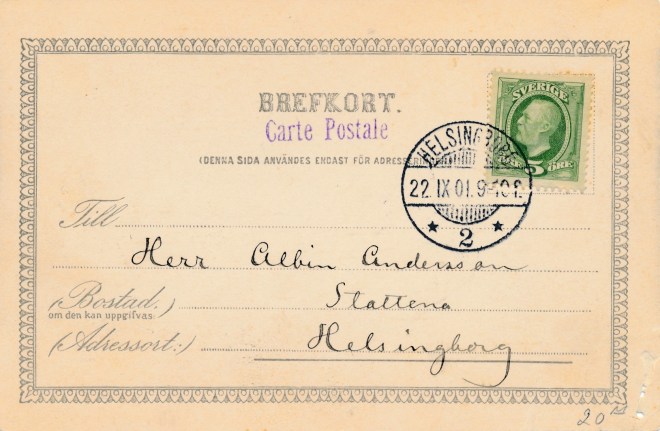 BREFKORT.
Carte Postale
(DENNA SIDA ANVÄNDES ENDAST FÖR
SVERIGE
5 ÖRE
HELSINGBORG
22 IX 01. 9-10 f.
2
Till
Herr Albin Andersson
(Bostad.)
om den kan uppgifvas
Stattena
(Adressort:)
Helsingborg
20